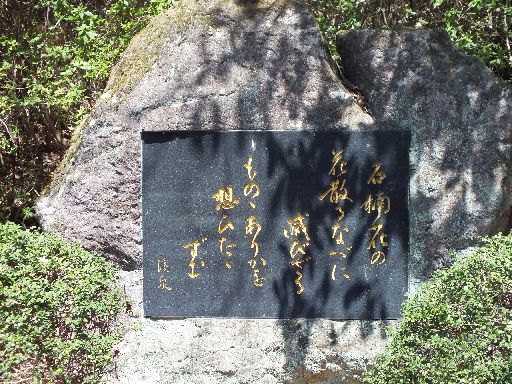 石楠花の
花散るなべに
滅びざる
ものゝありかを
想ひたゝ
ずむ